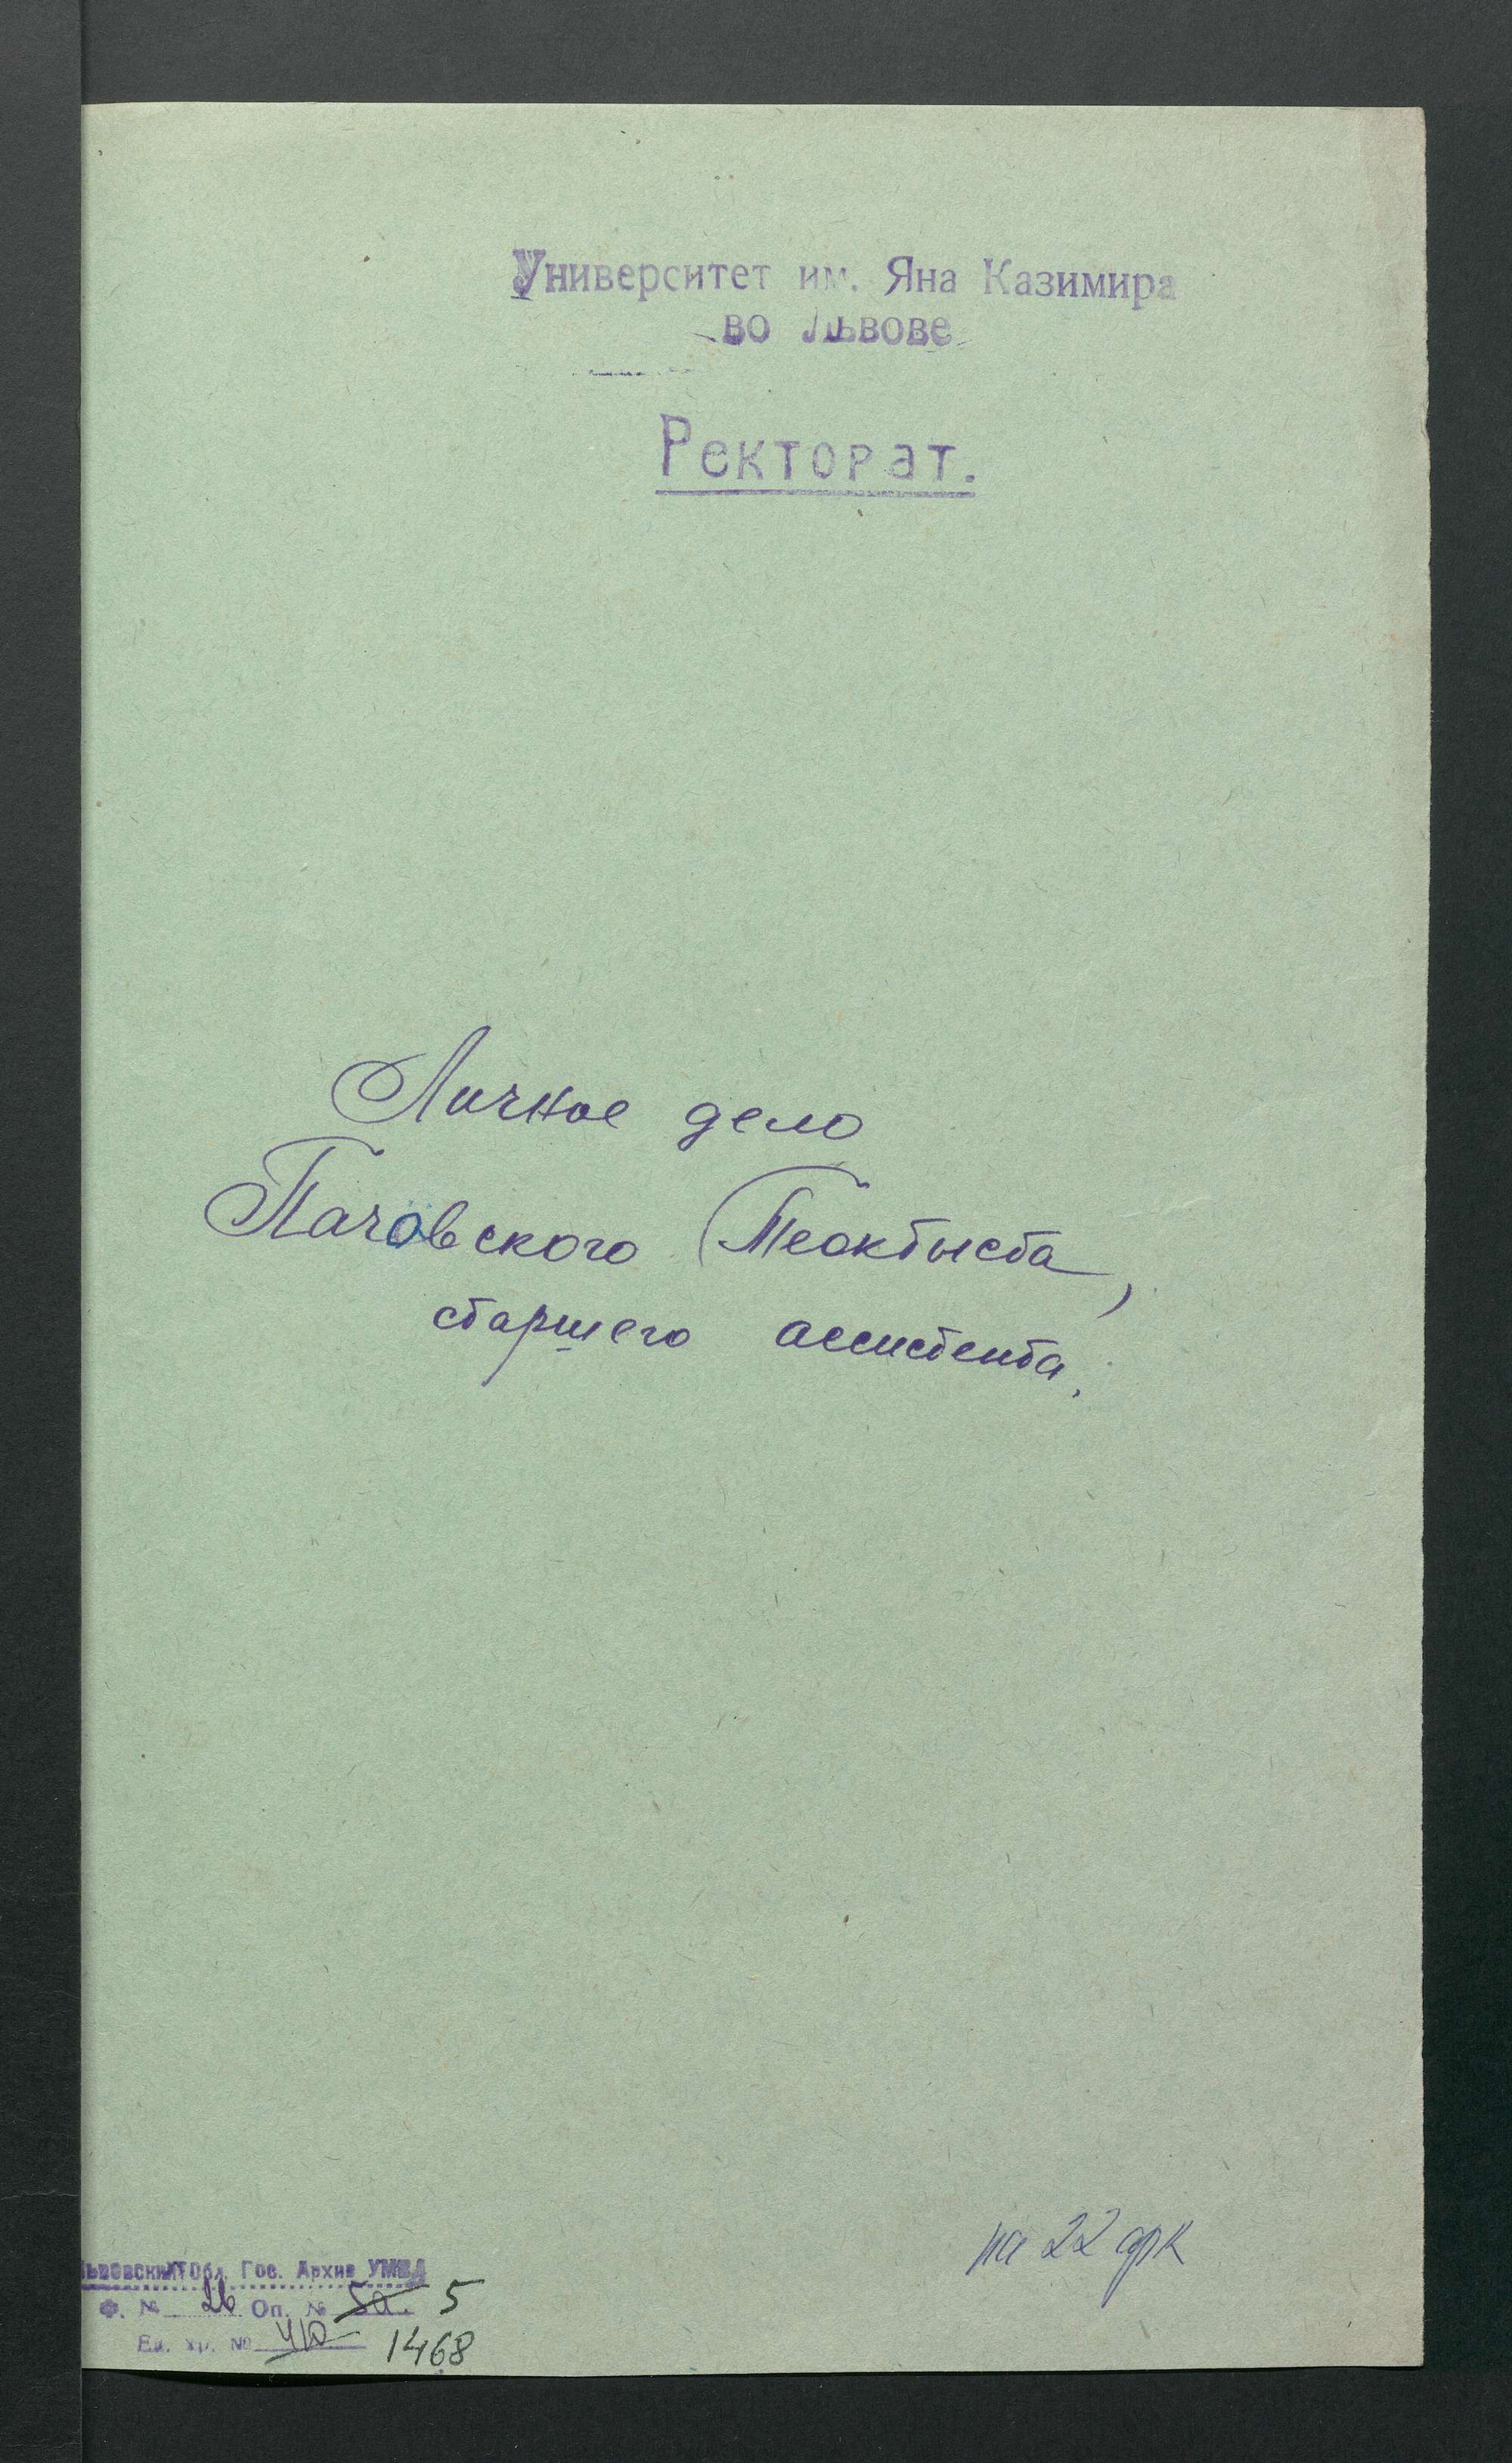 Университет им. Яна Казимира
во Львове
Ректорат.
Личное дело
Пачовского Теоктыста,
старшего ассистента.
на 22 фк
Львовский Обл. Гос. Архив УМВД
Ф. № 26 Оп. № 5а. 5
Ед. хр. № 1468